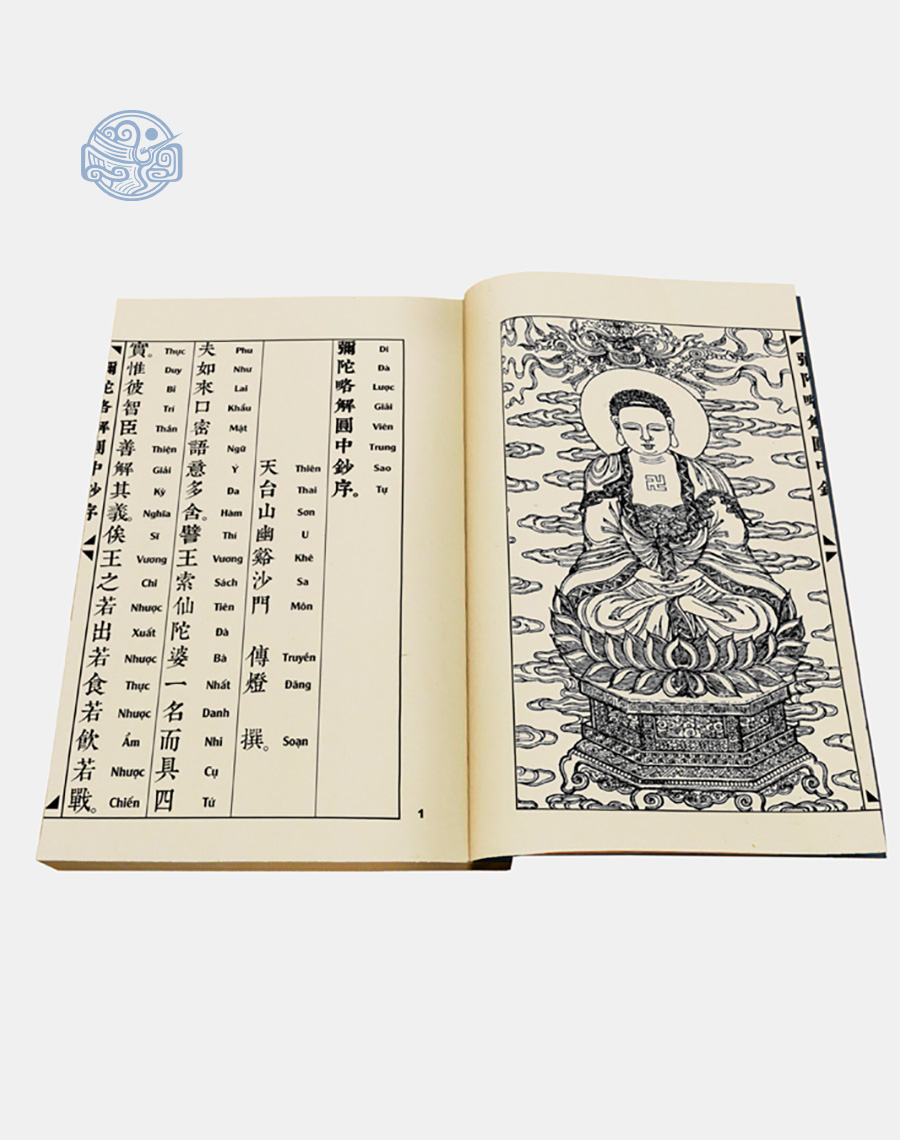 彌陀略解圓中鈔
彌陀略解圓中鈔序。
Di Đà Lược Giải Viên Trung Sao Tự
天台山幽谿沙門 傳燈 撰。
Thiên Thai Sơn U Khê Sa Môn Truyền Đăng Soạn
夫如來口密語意多含。譬王索仙陀婆一名而具四
Phu Như Lai Khẩu Mật Ngữ Ý Đa Hàm Thí Vương Sách Tiên Đà Bà Nhất Danh Nhi Cụ Tứ
實。惟彼智臣善解其義。俟王之若出若食若飲若戰。
Thực Duy Bỉ Trí Thần Thiện Giải Kỳ Nghĩa Sĩ Vương Chi Nhược Xuất Nhược Thực Nhược Ẩm Nhược Chiến
彌陀略解圓中鈔序
1